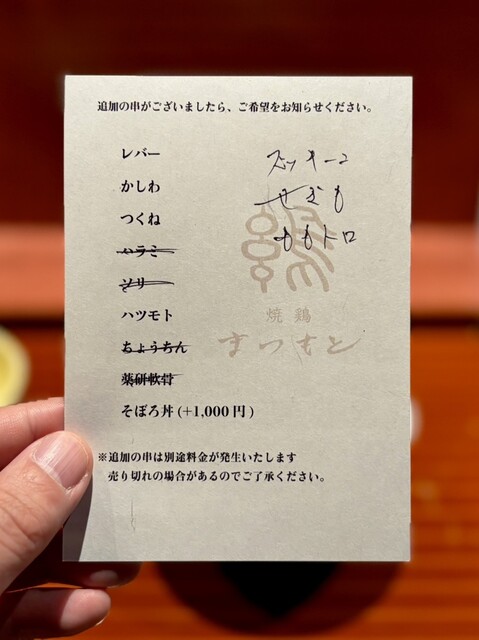 追加の串がございましたら、ご希望をお知らせください。
レバー
かしわ
つくね
ハラミ
ソリ
ハツモト
ちょうちん
薬研軟骨
そぼろ丼(+1,000円)
ズッキーニ
せぎも
ももトロ
焼鶏
まつもと
※追加の串は別途料金が発生いたします
売り切れの場合があるのでご了承ください。